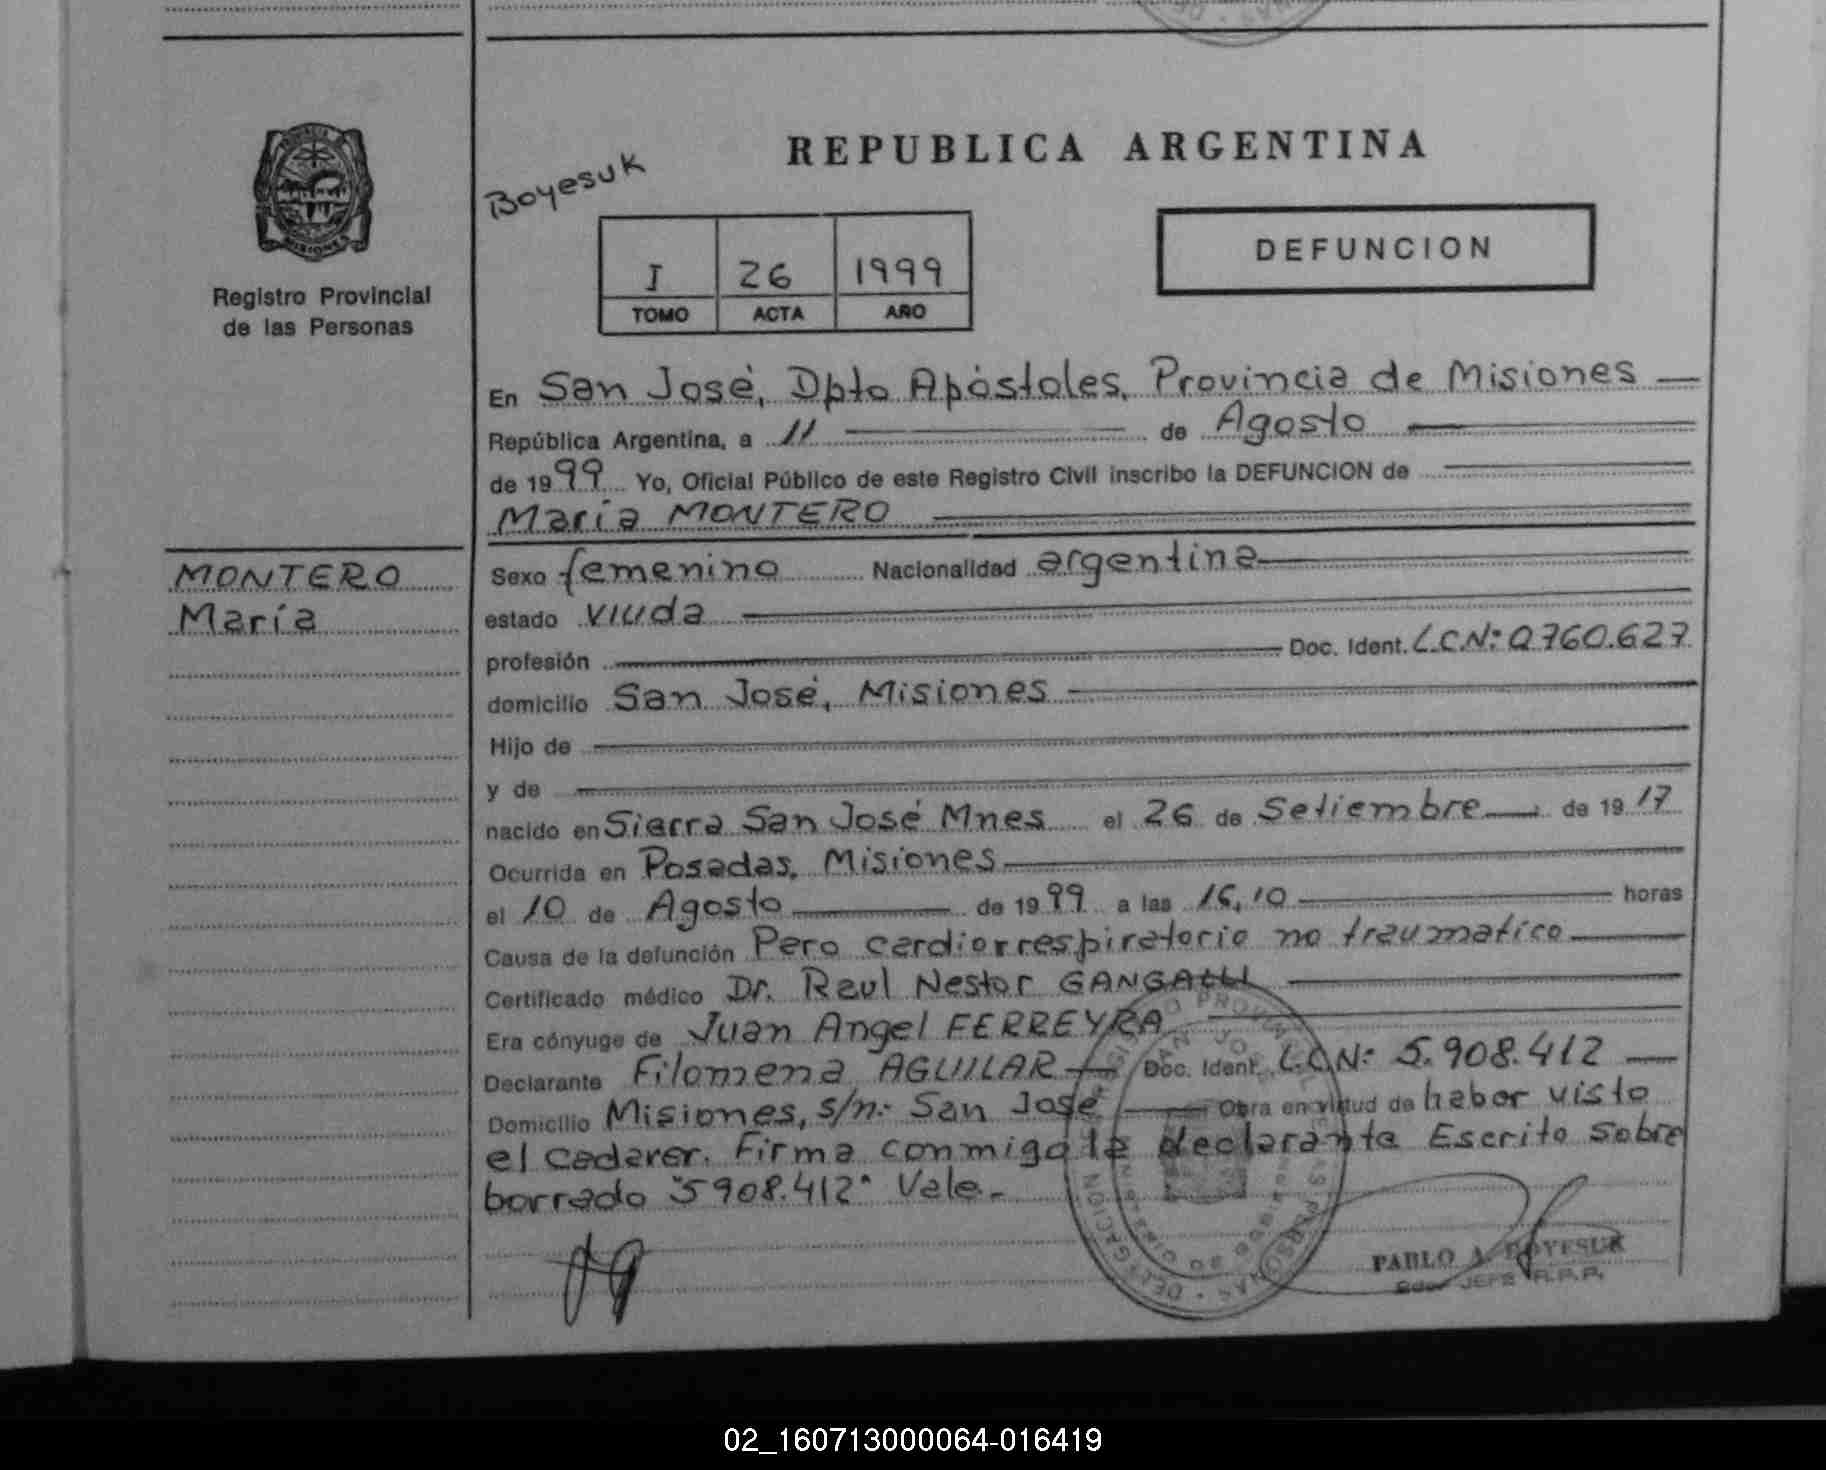 REPUBLICA ARGENTINA
Boyesuk
DEFUNCION
I 26 1999
TOMO ACTA AÑO
Registro Provincial
de las Personas
En San José, Dpto Apóstoles, Provincia de Misiones
República Argentina, a 11 de Agosto
de 1999 Yo, Oficial Público de este Registro Civil inscribo la DEFUNCION de
María MONTERO
MONTERO
María
Sexo femenino Nacionalidad argentina
estado viuda
profesión Doc. Ident. L.C.N: 0760.627
domicilio San José, Misiones
Hijo de
y de
nacido en Sierra San José Mnes el 26 de Setiembre de 1917
Ocurrida en Posadas, Misiones
el 10 de Agosto de 1999 a las 16,10 horas
Causa de la defunción Pero cardiorrespiratorio no traumatico
Certificado médico Dr. Raul Nestor GANGALLI
Era cónyuge de Juan Angel FERREYRA
Declarante Filomena AGUILAR Doc. Ident. L.C.N: 5.908.412
Domicilio Misiones, s/n: San José Obra en virtud de haber visto
el cadaver. Firma conmigo la declarante Escrito sobre
borrado "5908.412" Vale.-
PABLO A. BOYESUK
JEFE R.P.P.
02_160713000064-016419